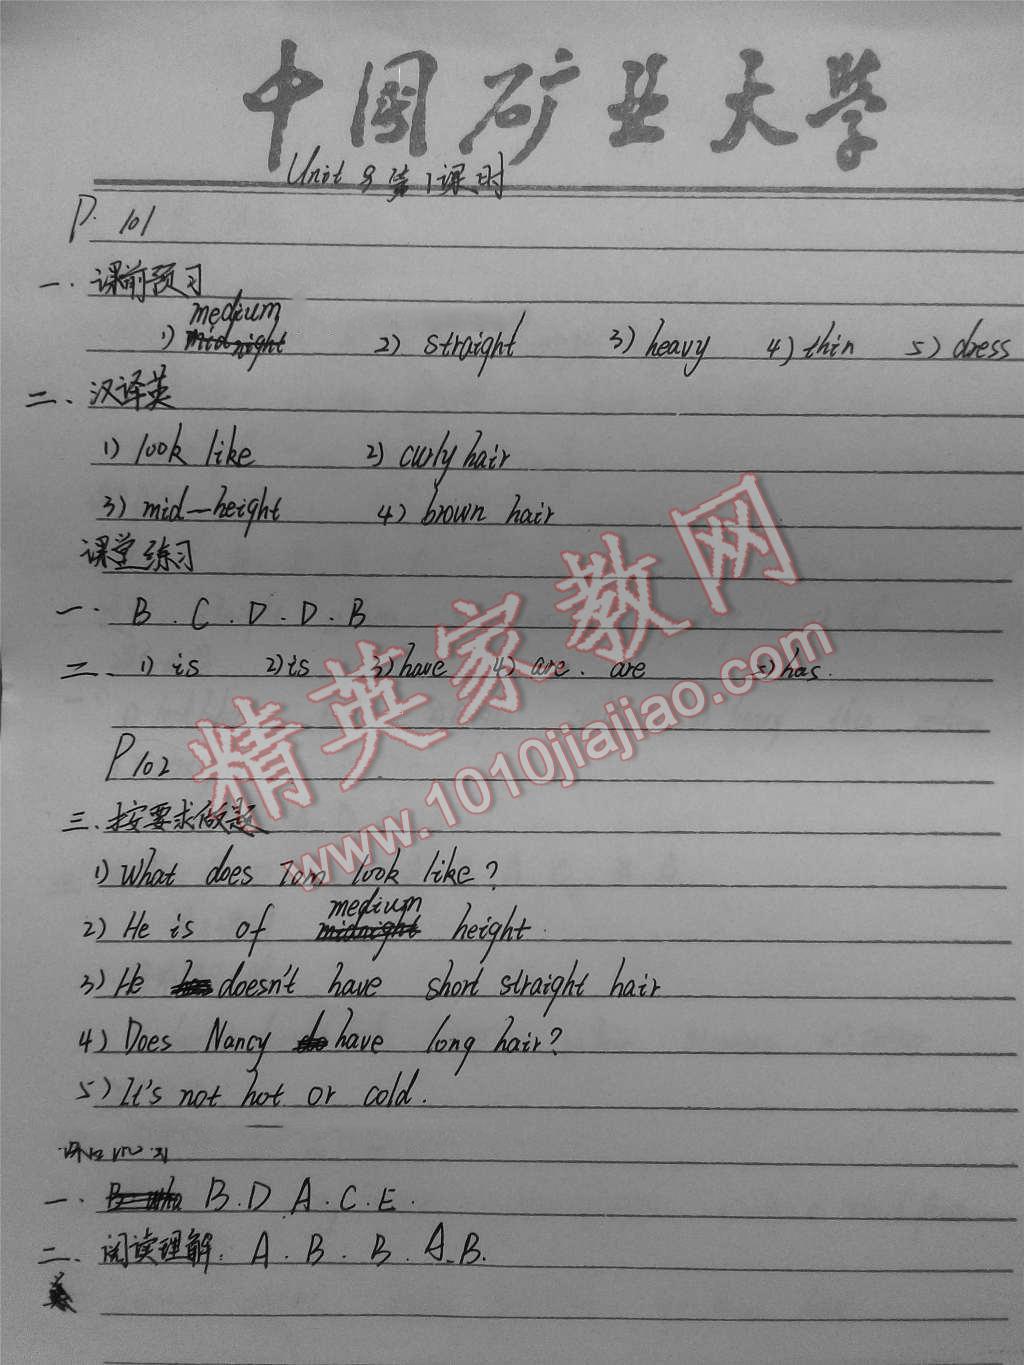 中国矿业大学
Unit 9 第1课时
P. 101
一. 课前预习
medium
1) midnight 2) straight 3) heavy 4) thin 5) dress
二、汉译英
1) look like 2) curly hair
3) mid-height 4) brown hair
课堂练习
一. B . C . D . D . B
二、1) is 2) is 3) have 4) are . are 5) has.
P102
三、按要求做题
1) What does Tom look like?
medium
2) He is of midnight height.
3) He doesn't have short straight hair
4) Does Nancy have long hair?
5) It's not hot or cold.
一. B . D A . C . E .
二、阅读理解: A . B . B . A . B.
精英家教网
www.1010jiajiao.com